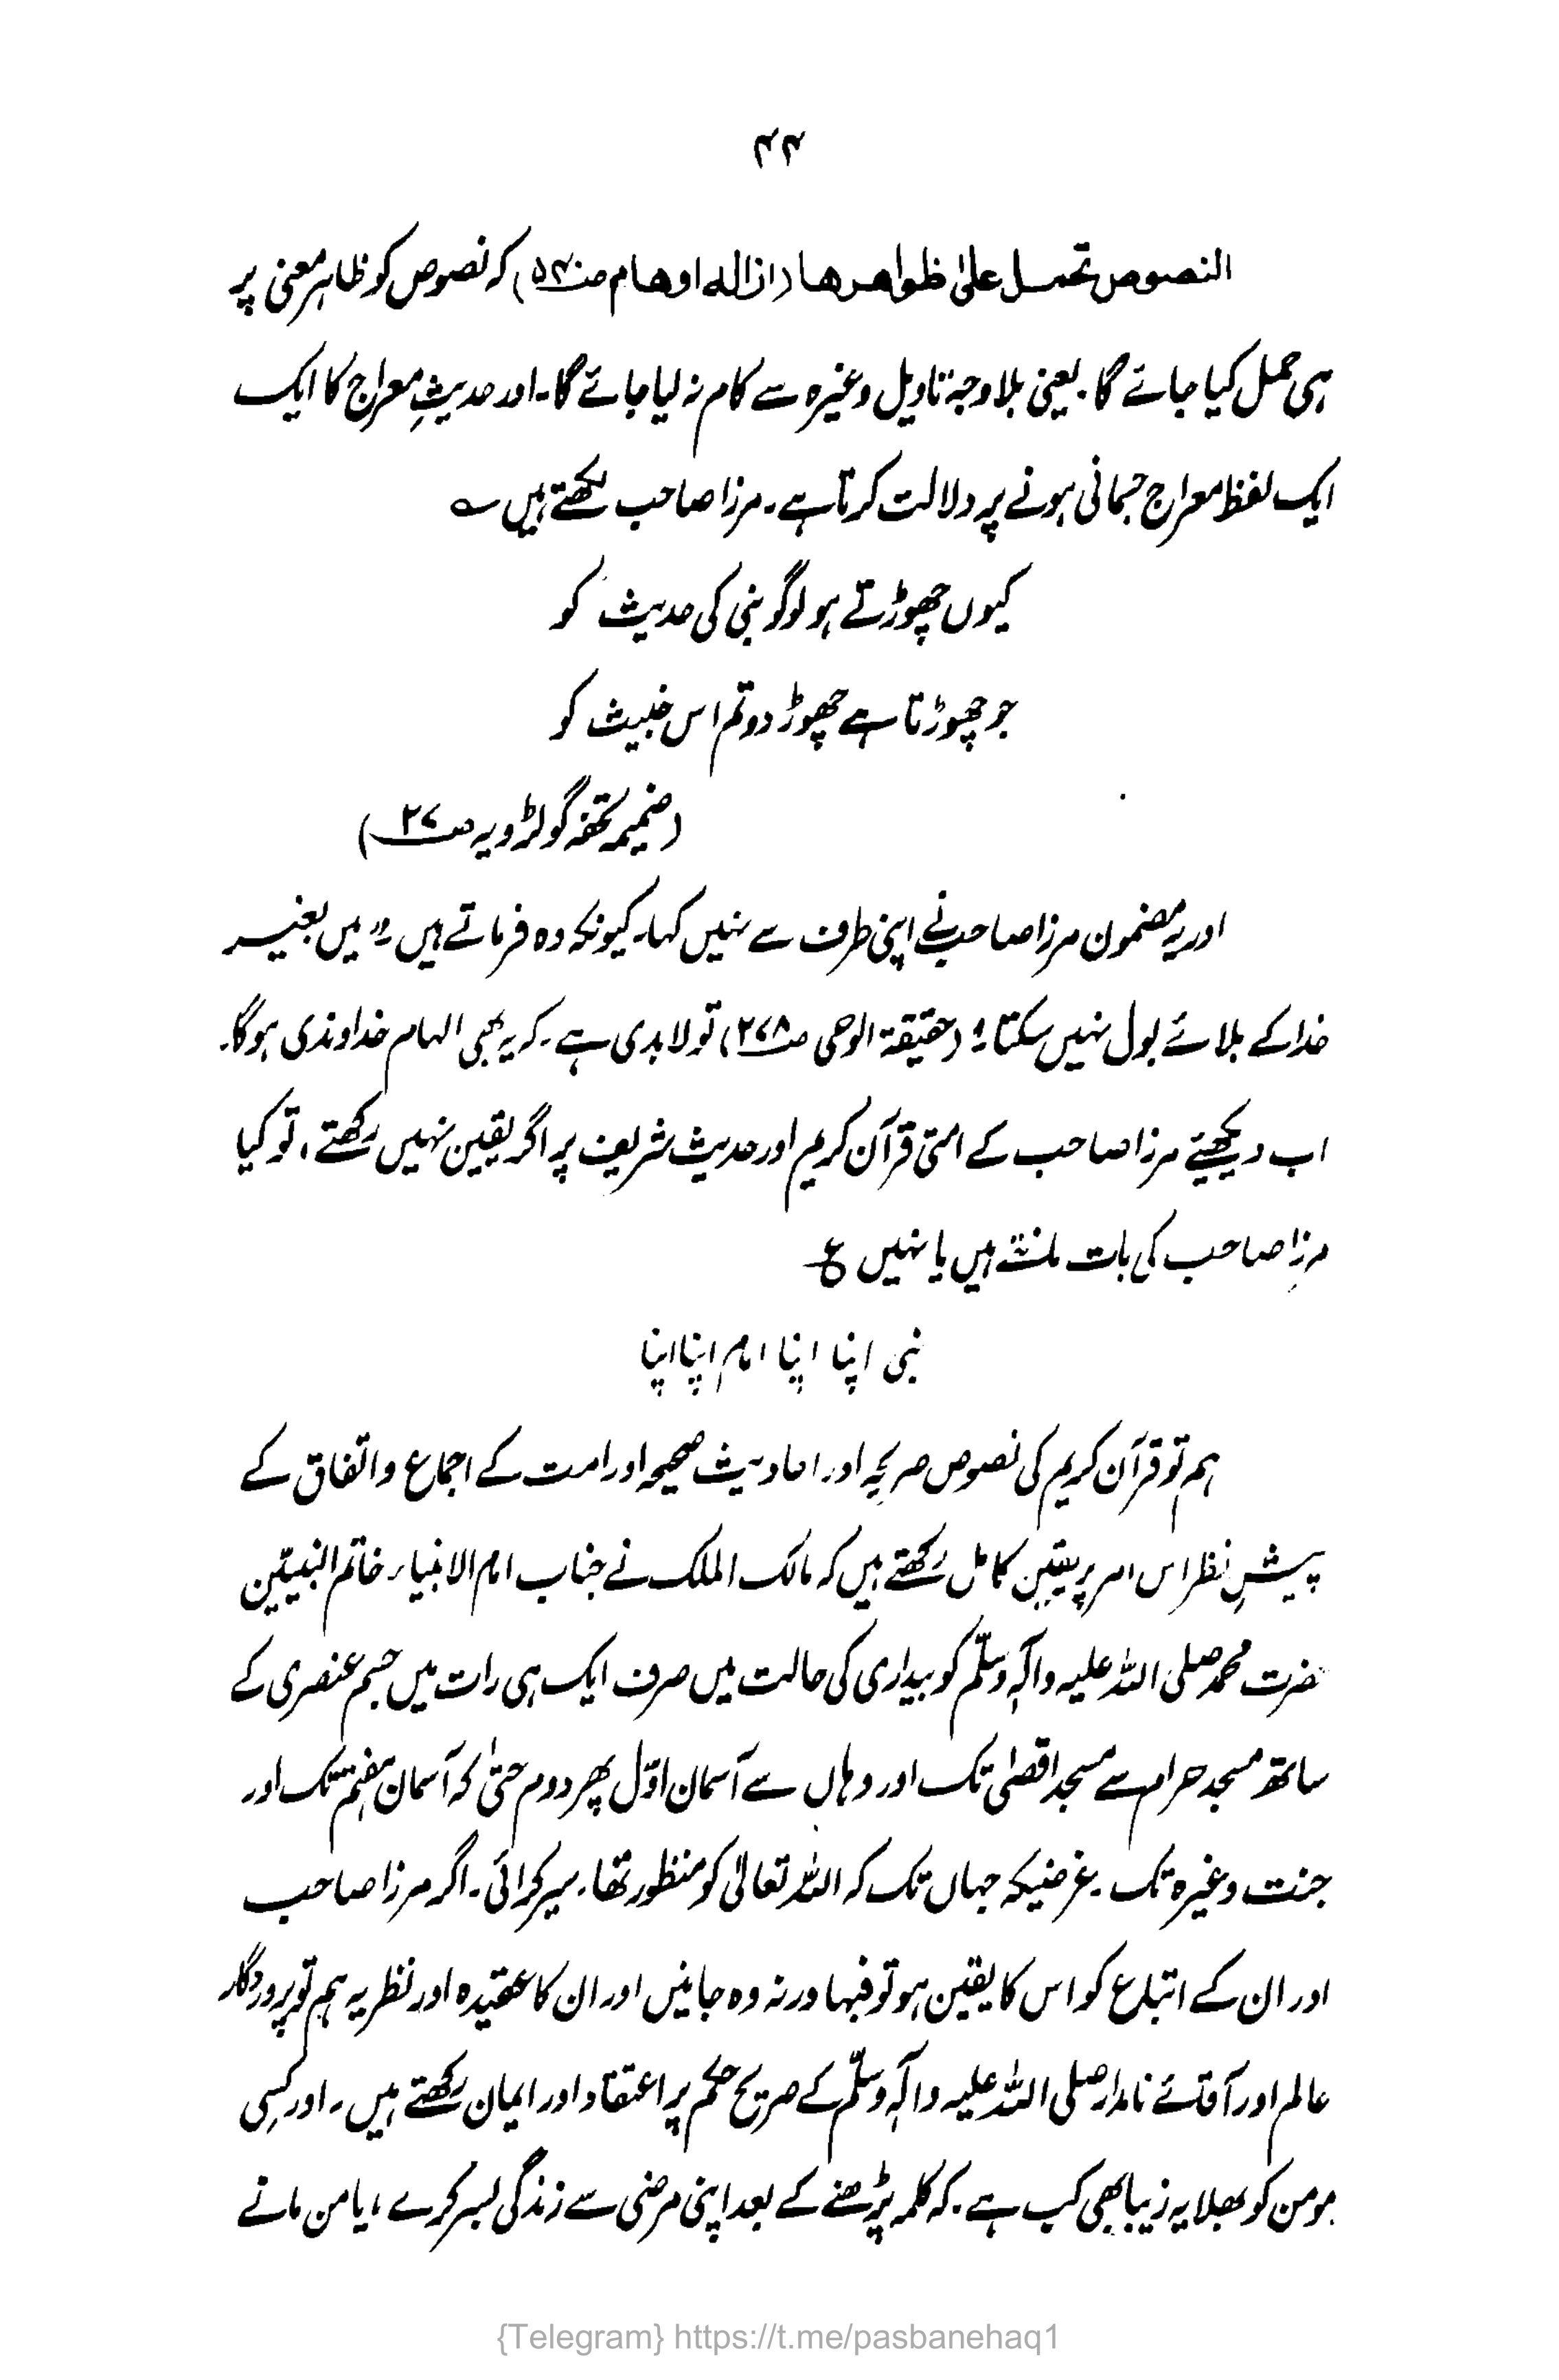 ۴۴
النصوص تحمل علیٰ ظواهرها (ازاله اوهام صـ۵۴۰) کہ نصوص کو ظاہر معنی پر
ہی حمل کیا جائے گا۔ یعنی بلاوجہ تاویل وغیرہ سے کام نہ لیا جائے گا۔ اور حدیثِ معراج کا ایک
ایک لفظ معراج جسمانی ہونے پر دلالت کرتا ہے۔ مرزا صاحب لکھتے ہیں ؎
کیوں چھوڑتے ہو لوگو نبی کی حدیث کو
جو چھوڑتا ہے چھوڑ دو تم اس خبیث کو
(ضمیمہ تحفہ گولڑویہ صـ۲۷)
اور یہ مضمون مرزا صاحب نے اپنی طرف سے نہیں کہا۔ کیونکہ وہ فرماتے ہیں۔ "میں بغیر
خدا کے بلائے بول نہیں سکتا" (حقیقۃ الوحی صـ۲۷۸) تو لابدی ہے۔ کہ یہ بھی الہام خداوندی ہوگا۔
اب دیکھئے مرزا صاحب کے امتی قرآن کریم اور حدیث شریف پر اگر یقین نہیں رکھتے، تو کیا
مرزا صاحب کی بات مانتے ہیں یا نہیں ع
نبی اپنا اپنا امام اپنا اپنا
ہم تو قرآن کریم کی نصوص صریحہ اور احادیث صحیحہ اور امت کے اجماع و اتفاق کے
پیشِ نظر اس امر پر یقین کامل رکھتے ہیں کہ مالک الملک نے جناب امام الانبیاء خاتم النبیّین
حضرت محمد صلی اللہ علیہ وآلہٖ وسلّم کو بیداری کی حالت میں صرف ایک ہی رات میں جسم عنصری کے
ساتھ مسجد حرام سے مسجد اقصیٰ تک اور وہاں سے آسمان اوّل پھر دوم حتیٰ کہ آسمان ہفتم تک اور
جنت وغیرہ تک۔ غرضیکہ جہاں تک کہ اللہ تعالیٰ کو منظور تھا۔ سیر کرائی۔ اگر مرزا صاحب
اور ان کے اتباع کو اس کا یقین ہو تو فبہا ورنہ وہ جانیں اور ان کا عقیدہ اور نظریہ ہم تو پروردگار
عالم اور آقائے نامدار صلی اللہ علیہ وآلہٖ وسلّم کے صریح حکم پر اعتقاد اور ایمان رکھتے ہیں۔ اور کسِی
مومن کو بھلا یہ زیبا بھی کب ہے۔ کہ کلمہ پڑھنے کے بعد اپنی مرضی سے زندگی بسر کرے، یا من مانے
{Telegram} https://t.me/pasbanehaq1